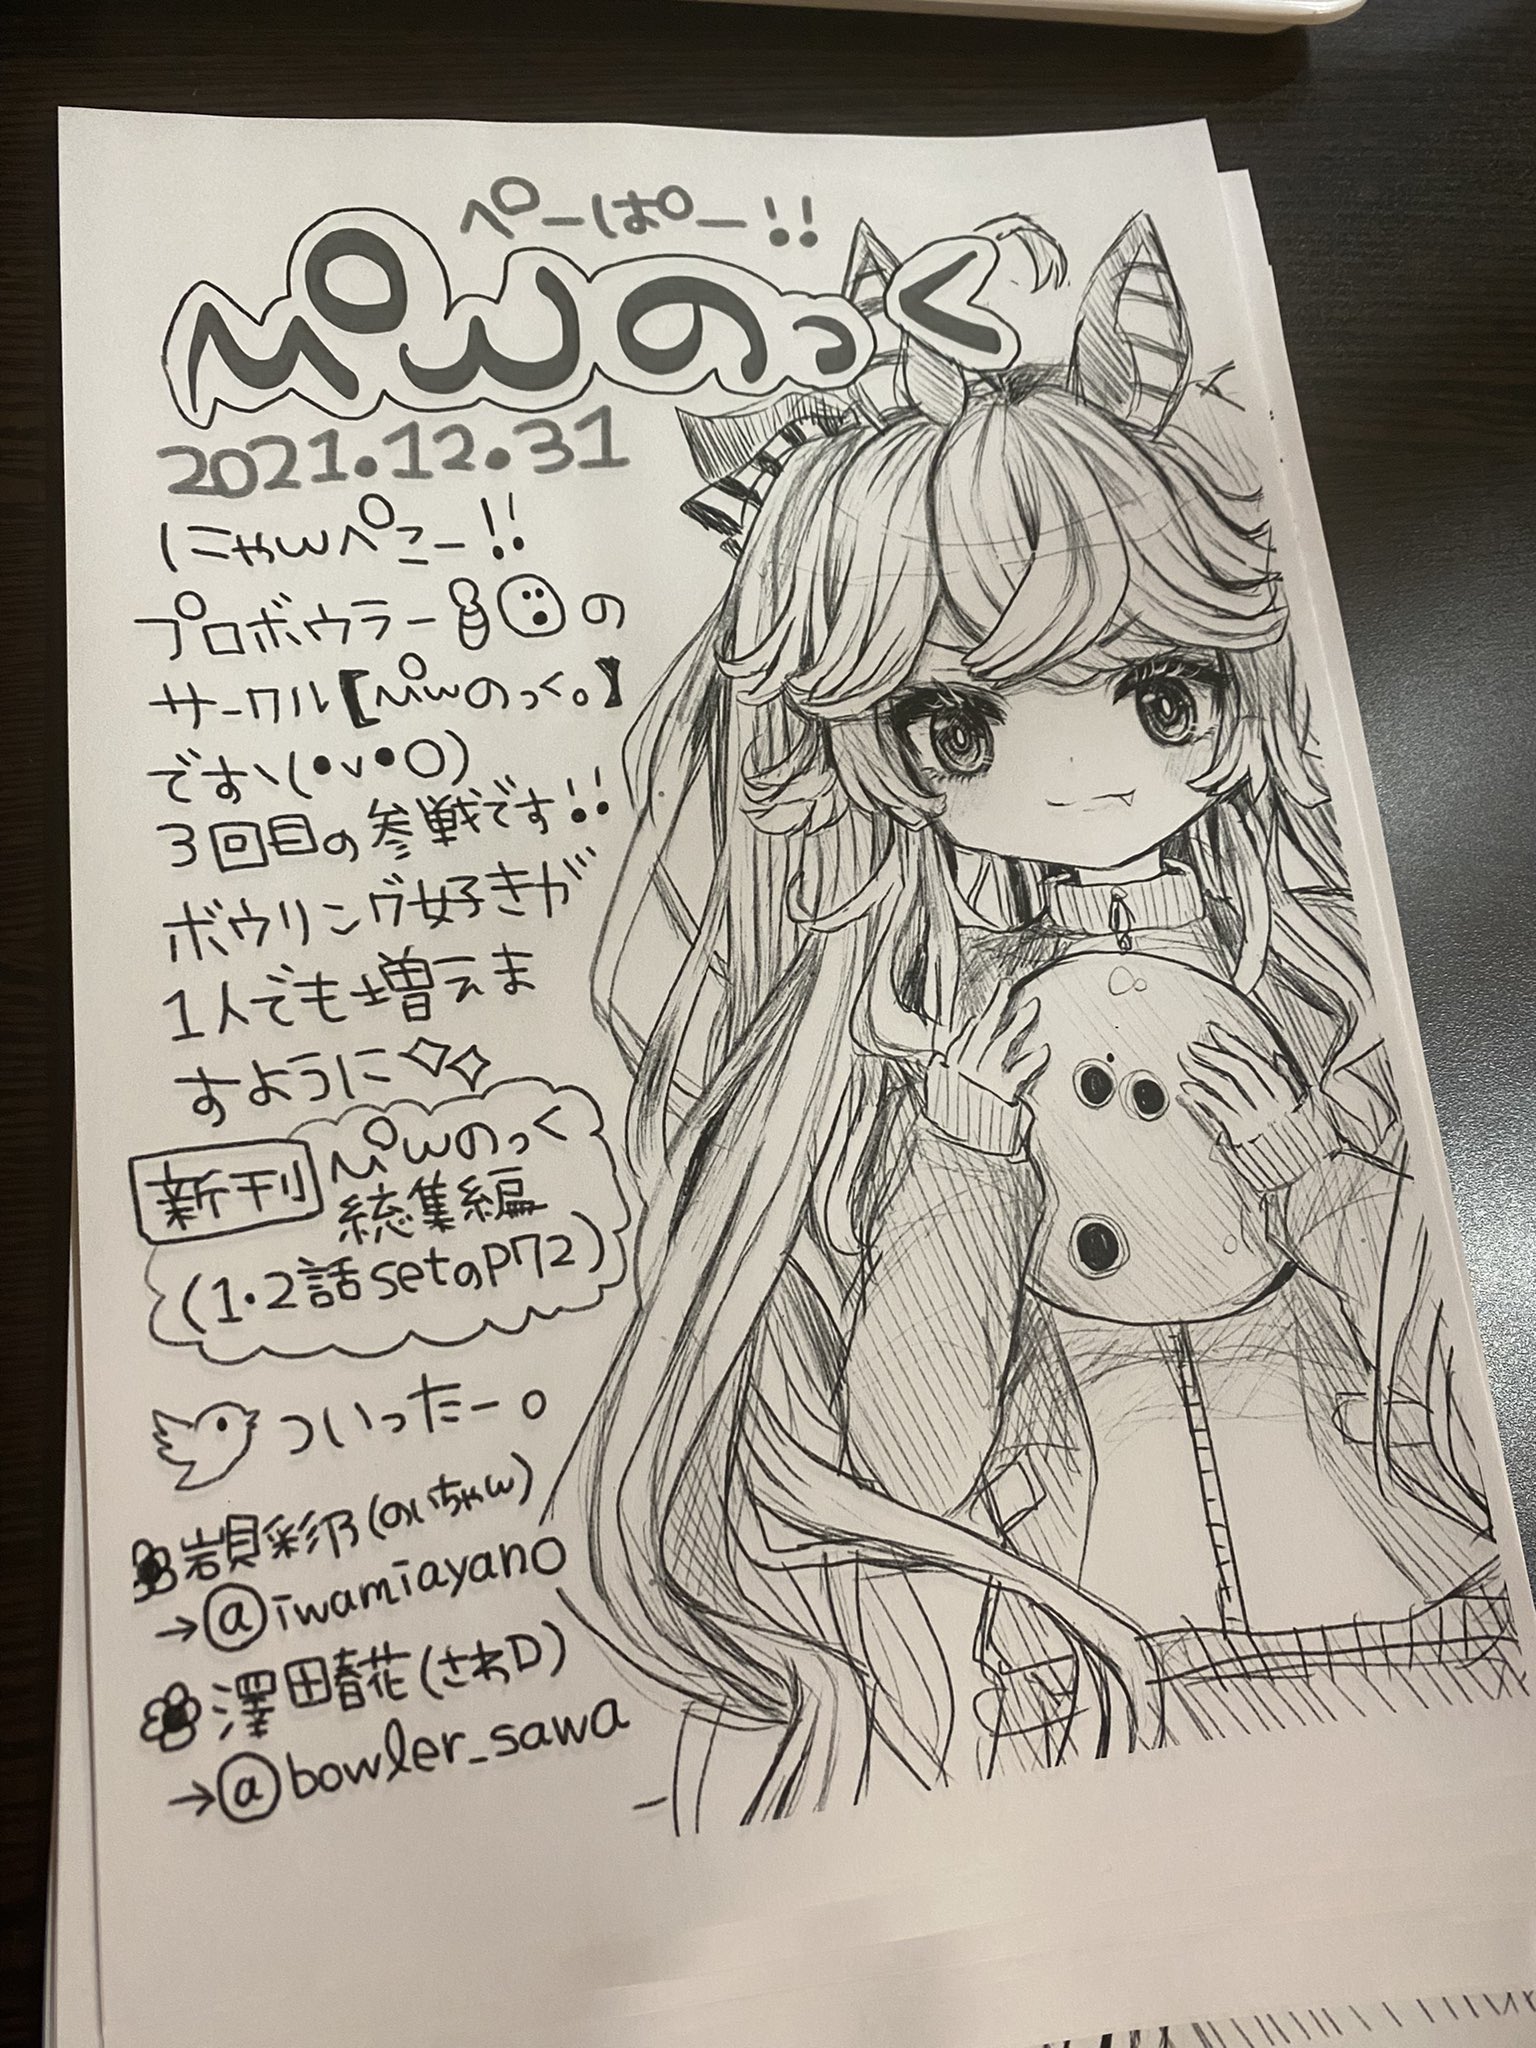 ぺーぱー!!
ぴんのっく
2021.12.31
にゃんぺこー!!
プロボウラーの
サークル【ぴんのっく。】
ですヽ(•v•○)
3回目の参戦です!!
ボウリング好きが
1人でも増えま
すように
新刊 ぴんのっく
総集編
(1・2話setのP72)
ついったー。
岩見彩乃(のいちゃん)
→@iwamiayano
澤田春花(さわD)
→@bowler_sawa